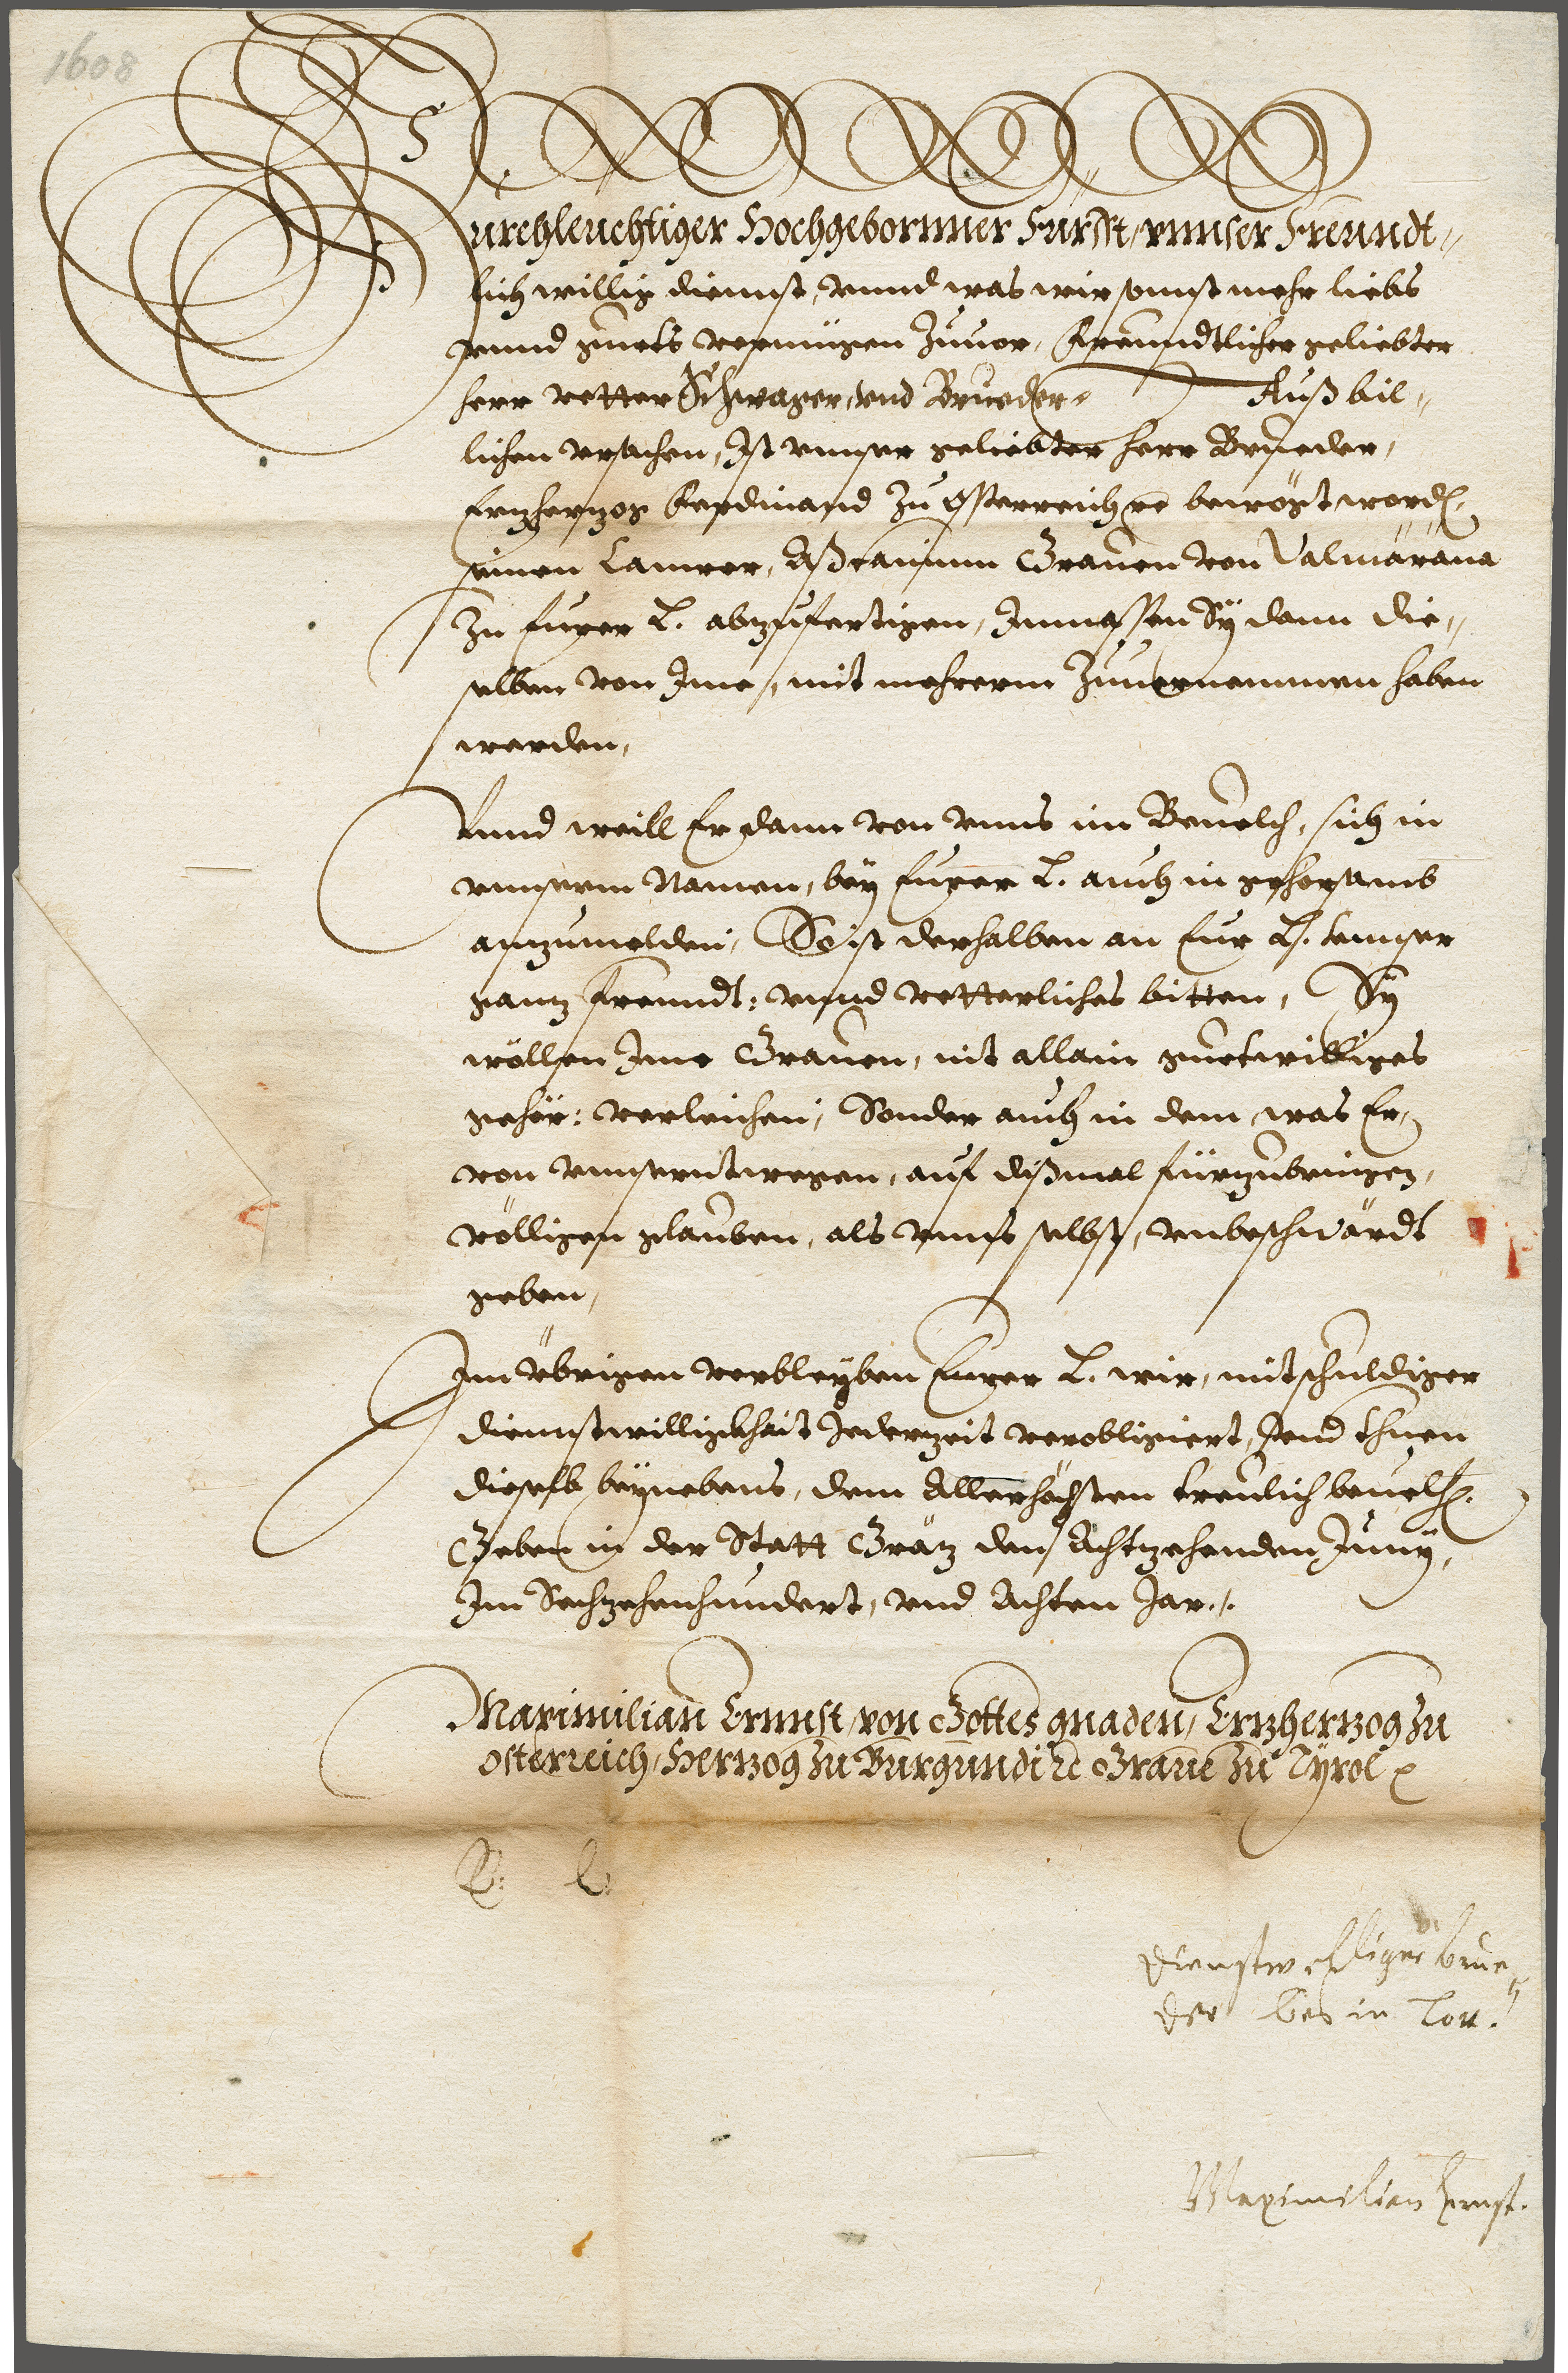 1608
Durchleuchtiger Hochgebornner Fürsst, vnnser Freundt„
lich willig diennst, vnnd was wir sonnst mehr liebs
vnnd guets vermügen Zuuor, Freundtlicher geliebter
herr vetter Schwager, vnd Brueder, Auß bil„
lichen vrsachen, Ist vnnser geliebter herr Brueder,
Ertzhertzog Ferdinand Zu Össterreich etc bewögt word[en],
seinen Camrer, Aßcanium Grauen von Valmarana
Zu Eurer L. abzufertigen, Inmassen Sÿ dann die„
selben von Ime, mit mehrerm Zuuernemmen haben
werden,
Vnnd weill Er dann von vnns im Beuelch, sich in
vnnserm Namen, beÿ Eurer L. auch in gehorsamb
anzumelden, So ist derhalben an Eur L. vnnser
gantz freundt: vnnd vetterliches bitten, Sÿ
wöllen Ime Grauen, nit allain guetwilliges
gehör: verleichen, Sonder auch in dem, was Er,
von vnnserntwegen, auf dißmal fürzubringen,
völligen glauben, als vnns selbst, vnbeschwärdt
geben,
Im übrigen verbleÿben Eurer L. wir, mit schuldiger
diennstwilligkhait Jederzeit verobligiert, vnd thuen
dieselb beÿnebens, dem Allerhöchsten treulich beuelh[en].
Geben in der Statt Grätz den Achtzehenden Junÿ,
Im Sechzehenhundert, vnd Achten Jar.
Maximilian Ernnst, von Gottes gnaden, Ertzhertzog Zu
Osterreich, Hertzog Zu Burgundi etc Graue Zu Tÿrol etc
E: L:
dienstwilliger brue„
der bis in Tott.
Maximilian Ernst.